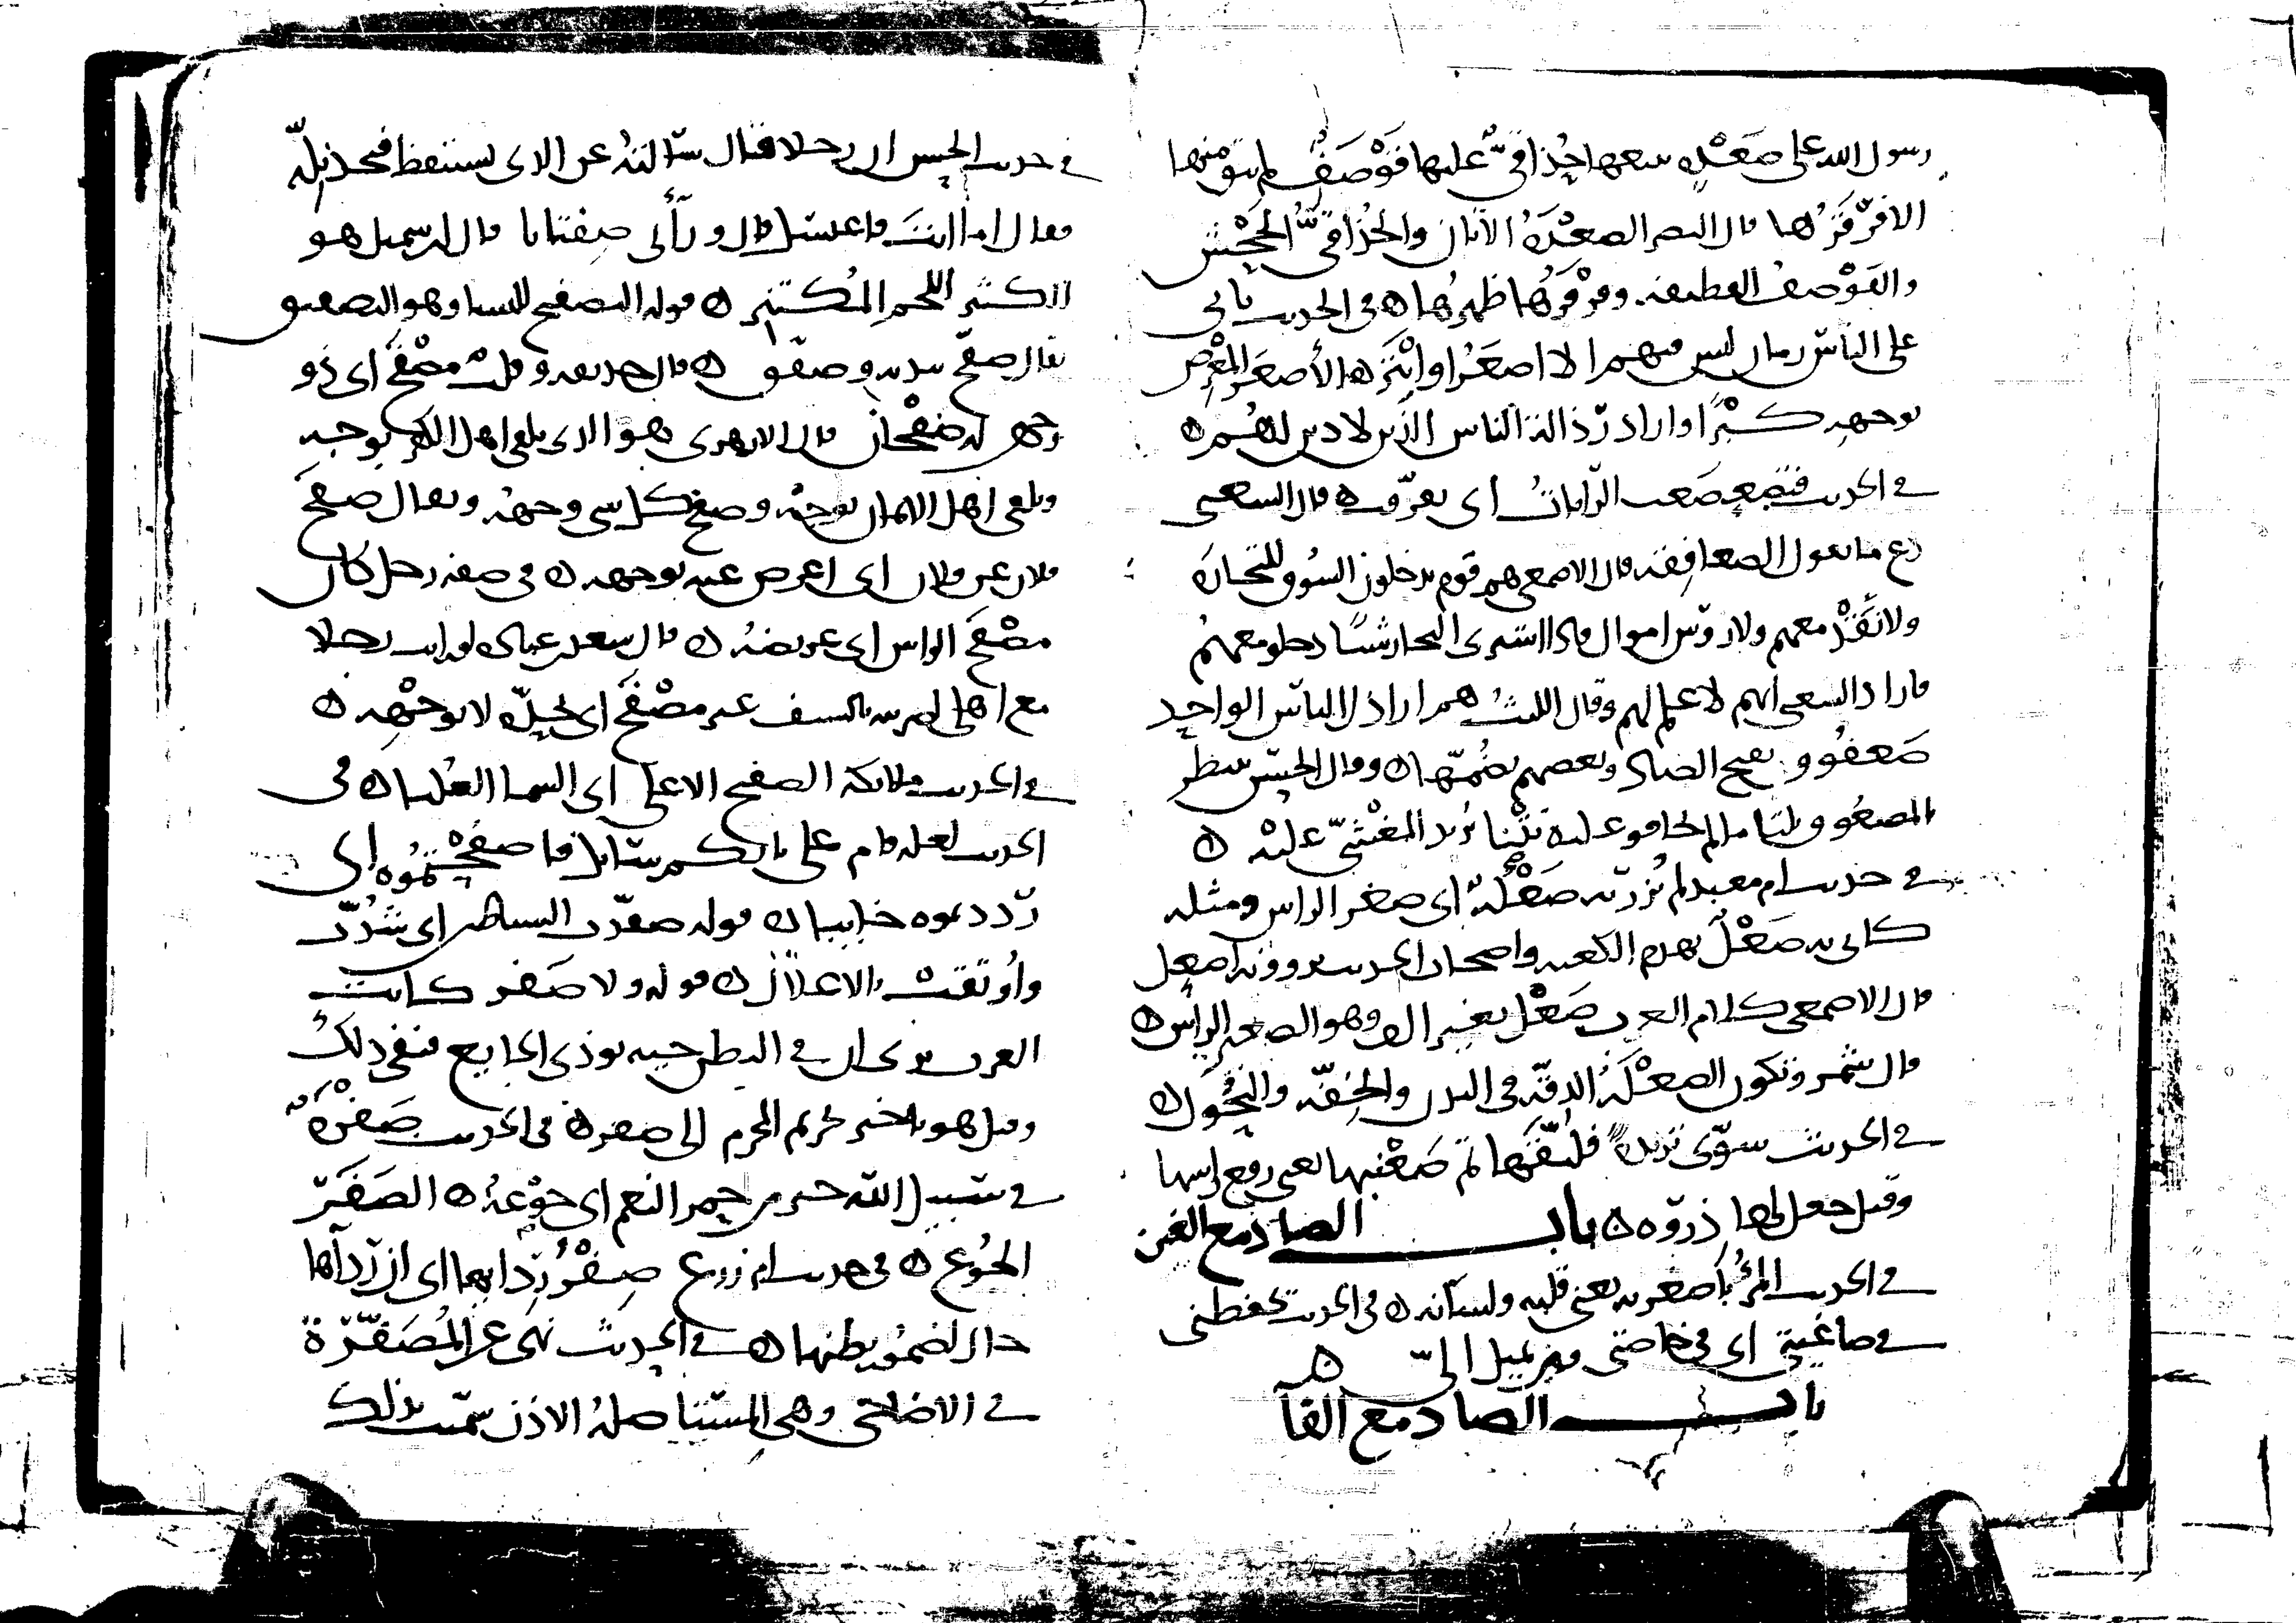 رسول الله على صَعْدَةٍ يتبعها حُذاقيٌّ عليها قَوْصَفٌ لم يبق منها
الا قَرْقَرُها قال النضر الصعْدَةُ الأتان والحُذاقيُّ الجَحْش
والقَوْصف القطيفة وقرقرُها ظهرُها ه في الحديث يأتي
على الناس زمان ليس فيهم الا اصعَرُ او ابْتَرُ الأصعَر المُعْرِض
بوجهه كبْرًا واراد رذالة الناس الذين لا دين لهم ه
في الحديث فتصعصعت الرايات اى تفرّقت ه قال الشعبي
دع ما تقول الصعافقة قال الاصمعي هم قوم يدخلون السُوق للتجارة
ولا نَقْدَ معهم ولا رؤس اموال فاذا اشترى التجار شيئا دخلو معهم
فاراد الشعبي انهم لا علم لهم وقال الليث هم اراذل الناس الواحد
صَعفُوق بفتح الصاد وبعضهم بضُمّها ه وقال الحسن ينظر
في حديث ام معبد لم تُزرِ به صَعْلَةٌ اى صغر الراس ومثله
كاني به صَعْلٌ يهدم الكعبة واصحاب الحديث يروونه اصعل
قال الاصمعي كلام العرب صَعْل بغير الف وهو الصغير الراس ه
قال شمر وتكون الصعْلَةُ الدقّة في البدن والخفّة والنُحُول ه
في الحديث سوّى ثريدة فلبّقها ثم صَعْنبها يعني رفع راسها
وقيل جعل لها ذروة ه باب الصاد مع الغين
في الحديث المرْءُ بأصغريه يعني قلبه ولسانه ه في الحديث يحفظني
في صاغيتي اى في خاصّتي ومن يميل اليّ ه
باب الصاد مع الفآ
في حديث الحسن ان رجلا قال سألته عن الذي يستيقظ فيجد بِلّة
فقال اما انت فاغتسل قال ورأني صِفتاتا قال ابن شميل هو
الكثير اللحم المُكتنِز ه قوله التصفيح للنسا وهو التصفيق
يقال صفّح بيديه وصفّق ه قال حذيفة وقلب مصْفَح اى ذو
وجهين له صفْحان قال الازهري هو الذي يلقى اهل الكفر بوجه
ويلقى اهل الايمان بوجه وصفح كل شي وجهه ويقال صفَح
فلان عن فلان اى اعرض عنه بوجهه ه في صفة رجل كان
مصْفَح الراس اى عريضه ه قال سعد بن عبادة لو رايت رجلا
مع اهلي لضربته بالسيف غير مصْفَح اى بحدّه لا بوجْهِه ه
في الحديث ملائكة الصفيح الاعلى اى السما العُليا ه في
الحديث لعله قام على بابكم سائل فاصفحْتمُوه اى
رددتموه خائبا ه قوله صفّدت الشياطين اى شُدّت
واُوثقت بالاغلال ه قوله ولا صَفر كانت
العرب ترى ان في البطن حية توذي الجايع فنفى ذلك
وقيل هو تاخير تحريم المحرم الى صفر ه في الحديث صَفْرَةٌ
في سبيل الله خير من حمر النعم اى جوْعَة ه الصَفَر
الجُوع ه في حديث ام زرع صِفْرُ رِدايها اى ان رداها
خال لضمُور بطنها ه في الحديث نهى عن المُصَفّرة
في الاضاحي وهي المستاصلةُ الاذن سمّيت بذلك